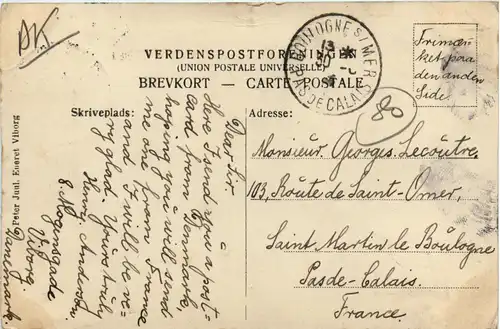 DK
VERDENSPOSTFORENINGEN
(UNION POSTALE UNIVERSELLE)
BREVKORT — CARTE POSTALE
BOULOGNE S/ MER
PAS DE CALAIS
Frimær
ket paa
den anden
Side
80
Skriveplads:
Dear Sir
Here I send you a post-
card from Denmark,
hoping you will send
me one from France
and I will be ve-
ry glad. Yours truly
Henry Andersen.
S. Mogensgade
Viborg
Danemark
Adresse:
Monsieur Georges Lecoutre,
103, Route de Saint-Omer,
Saint Martin le Boulogne
Pas-de-Calais.
France
Peter Juul. Eneret Viborg